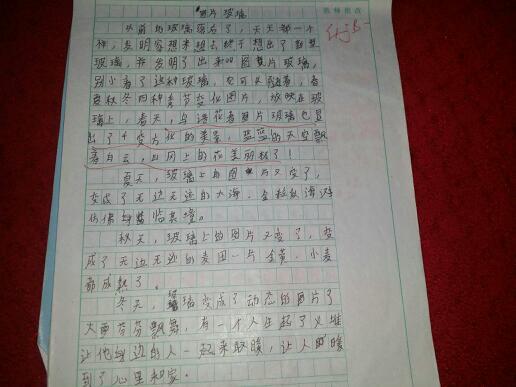 图片玻璃
从前的玻璃落后了，天天都一个
样，发明家想来想去终于想出了新型
玻璃，并发明了出来叫图片玻璃，
别小看了这种玻璃，它可以随着，春
夏秋冬四种季节变化图片，放映在玻
璃上，春天，鸟语花香图片玻璃也冒
出了美景，蓝蓝的天空飘
着白云，山冈上的花美丽极了！
夏天，玻璃上的图片又变了，
变成了无边无迹的大海，
仿佛身临其境。
秋天，玻璃上的图片又变了，变
成了无边无迹的麦田一片金黄，小麦
都成熟了。
冬天，玻璃变成了动态的图片了
大雪芬芬飘舞，有一个人生起了火堆
让他身边的人一起来取暖，让人暖
到了心里和家。